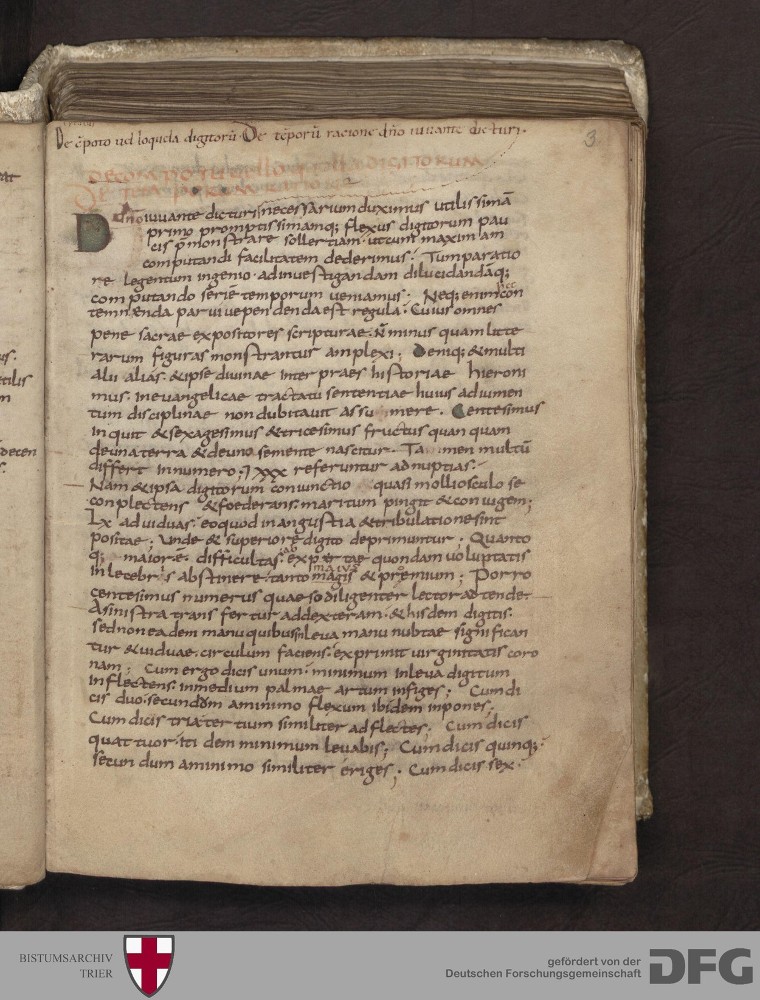 De cpoto vel loquela digitorū. De tēporū racione dn̄o iuuante dicturi.
3
DIGITORUM
De temporum ratione
Dn̄o iuuante dicturi necessarium duximus utilissimā
primo promptissimamq; flexus digitorum pau
cis p̄monstrare sollertiam. ut cum maximam
computandi facilitatem dederimus. Tum paratio
re legentum ingenio. ad inuestigandam dilucidandāq;
computando seriē temporum ueniamus. Neq; enim con
temnenda paruiue pendenda est regula. Cuius omnes
pene sacrae expositores scripturae. n̄ minus quam litte
rarum figuras monstrantur amplexi; Deniq; & multi
alii alias. & ipse diuinae interpraes historiae hieroni
mus. in euangelicae tractatu sententiae huius adiumen
tum disciplinae non dubitauit assumere. Centesimus
inquit & sexagesimus & tricesimus fructus quanquam
de una terra & de uno semente nascitur. Tamen multū
differt in numero; XXX referuntur ad nuptias.
Nam & ipsa digitorum coniunctio quasi molli osculo se
conplectens & foederans. maritum pingit & coniugem;
LX ad uiduas. eo quod in angustia & tribulatione sint
positae; Unde & superiore digito deprimuntur; Quanto
q; maior ē. difficultas. expertae quondam uoluptatis
maius
inlecebris abstinere. tanto magis & premium; Porro
centesimus numerus quaeso diligenter lector adtende.
A sinistra transfertur ad dexteram. & hisdem digitis.
sed non eadem manu quibus in leua manu nubtae significan
tur & uiduae. circulum faciens. exprimit uirginitatis coro
nam; Cum ergo dicis unum. minimum in leua digitum
inflectens. in medium palmae artum infiges; Cum di
cis duo. secundum a minimo flexum ibidem inpones;
Cum dicis tria. tertium similiter adflectes; Cum dicis
quattuor. itidem minimum leuabis; Cum dicis quinq;
secundum a minimo similiter eriges; Cum dicis sex.
BISTUMSARCHIV
TRIER
gefördert von der
Deutschen Forschungsgemeinschaft
DFG